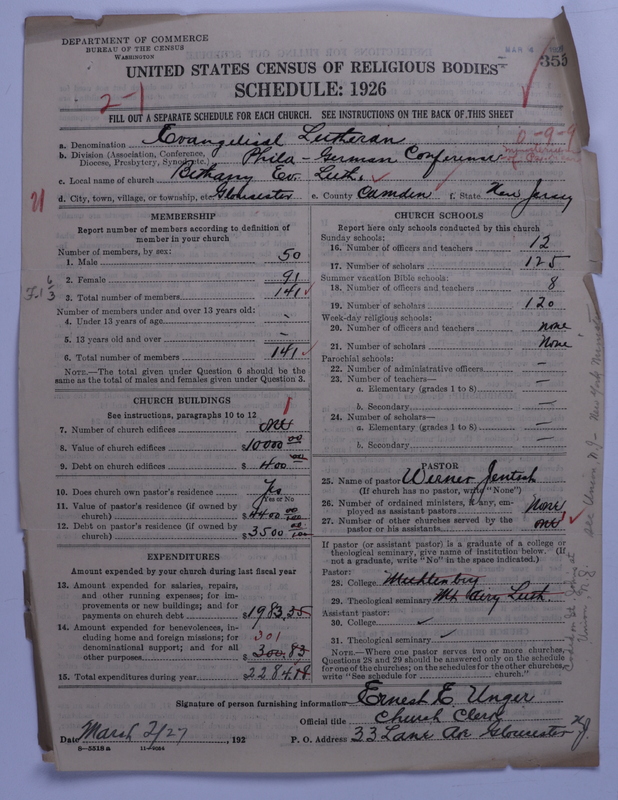 DEPARTMENT OF COMMERCE
BUREAU OF THE CENSUS
WASHINGTON
MAR
355
UNITED STATES CENSUS OF RELIGIOUS BODIES
SCHEDULE: 1926
2-1
FILL OUT A SEPARATE SCHEDULE FOR EACH CHURCH. SEE INSTRUCTIONS ON THE BACK OF THIS SHEET
0-9-9
a. Denomination Evangelical Lutheran
b. Division (Association, Conference, Diocese, Presbytery, Synod, etc.) Phila - German Conference
c. Local name of church Bethany Ev. Luth.
d. City, town, village, or township, etc. Gloucester e. County Camden f. State New Jersey
21
MEMBERSHIP
Report number of members according to definition of
member in your church
Number of members, by sex:
1. Male 50
2. Female 91
3. Total number of members 141
Number of members under and over 13 years old:
4. Under 13 years of age -
5. 13 years old and over -
6. Total number of members 141
NOTE.—The total given under Question 6 should be
the same as the total of males and females given under Question 3.
CHURCH BUILDINGS
See instructions, paragraphs 10 to 12
1
7. Number of church edifices one
8. Value of church edifices $10000 00
9. Debt on church edifices $400 00
10. Does church own pastor's residence Yes
Yes or No
11. Value of pastor's residence (if owned by
church) $4400 00/100
12. Debt on pastor's residence (if owned by
church) $3500 00/100
EXPENDITURES
Amount expended by your church during last fiscal year
13. Amount expended for salaries, repairs,
and other running expenses; for im-
provements or new buildings; and for
payments on church debt $1983.35
14. Amount expended for benevolences, in-
cluding home and foreign missions; for
denominational support; and for all
other purposes $300.83
301
15. Total expenditures during year 2284.18
CHURCH SCHOOLS
Report here only schools conducted by this church
Sunday schools:
16. Number of officers and teachers 12
17. Number of scholars 125
Summer vacation Bible schools:
18. Number of officers and teachers 8
19. Number of scholars 120
Week-day religious schools:
20. Number of officers and teachers none
21. Number of scholars None
Parochial schools:
22. Number of administrative officers —
23. Number of teachers—
a. Elementary (grades 1 to 8) —
b. Secondary —
24. Number of scholars—
a. Elementary (grades 1 to 8) —
b. Secondary —
PASTOR
25. Name of pastor Werner Jentsch
(If church has no pastor, write "None")
26. Number of ordained ministers, if any, em-
ployed as assistant pastors None
27. Number of other churches served by the
pastor or his assistants one
If pastor (or assistant pastor) is a graduate of a college or
theological seminary, give name of institution below. (If
not a graduate, write "No" in the space indicated.)
Pastor:
28. College Muhlenburg
29. Theological seminary Mt Airy Luth
Assistant pastor:
30. College
31. Theological seminary
NOTE.—Where one pastor serves two or more churches,
Questions 28 and 29 should be answered only on the schedule
for one of the churches; on the schedules for the other churches
write "See schedule for church."
see Union N.J - New York Ministerium
Union N.J
Signature of person furnishing information Ernest E. Unger
Official title Church Clerk
Date March 2/27, 192 P. O. Address 33 Lane Ave Gloucester N.J.
8-5518 a 11-9084